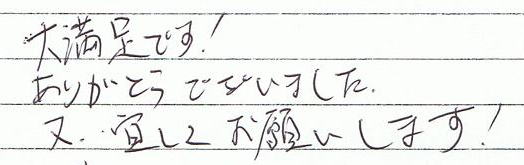 大満足です!
ありがとうございました.
又、宜しくお願いします!